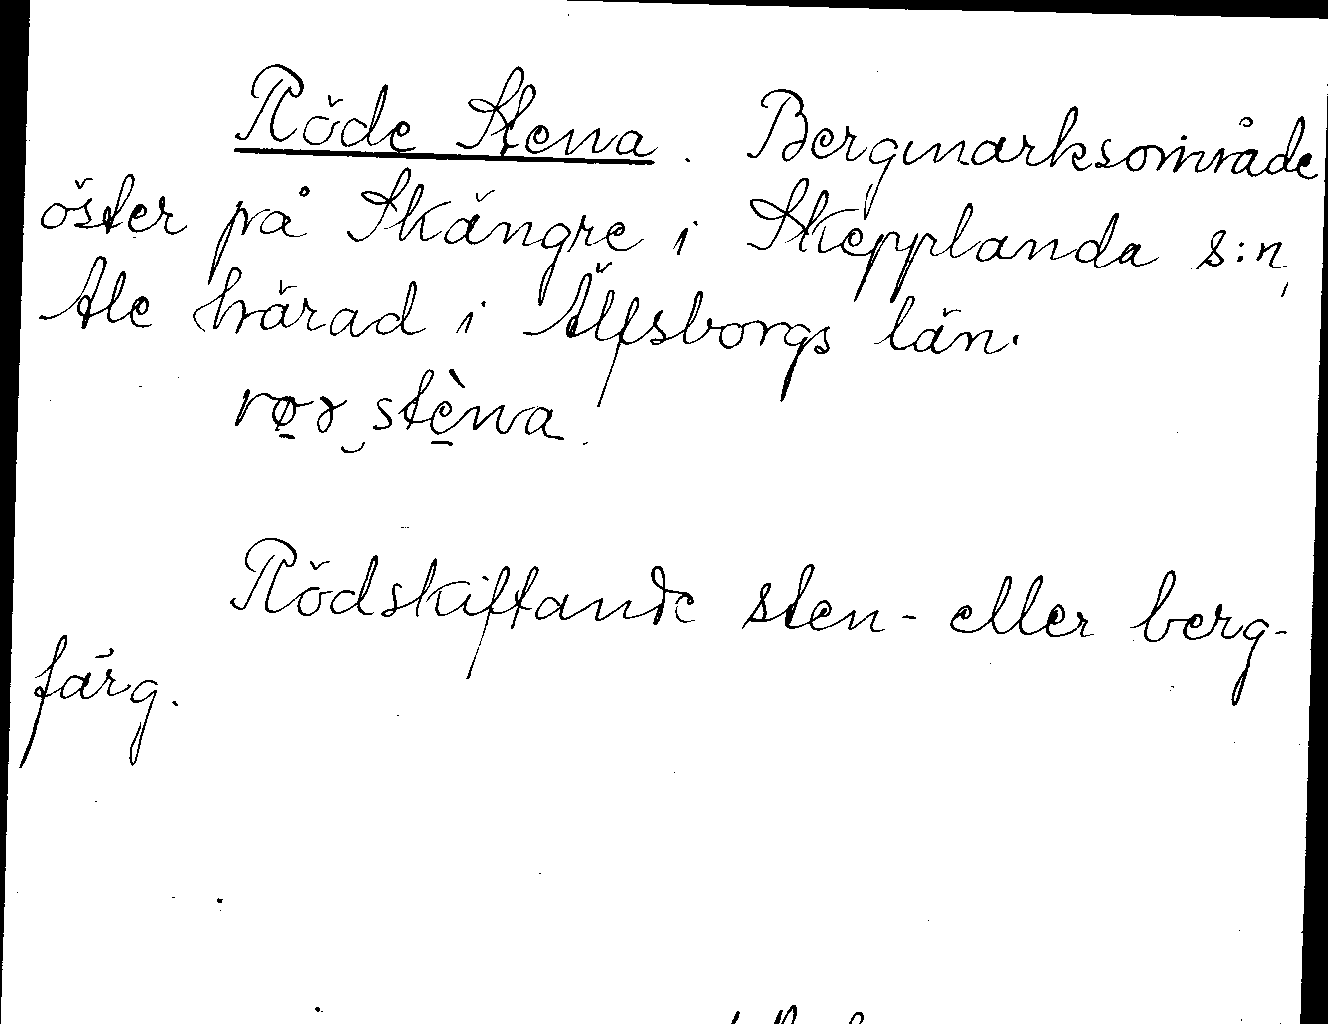 Röde Stena. Bergmarksområde
öster på Skångre i Skepplanda s:n,
Ale härad i Älfsborgs län.
rø̱ɤ‿stè̱na.
Rödskiftande sten- eller berg-
färg.